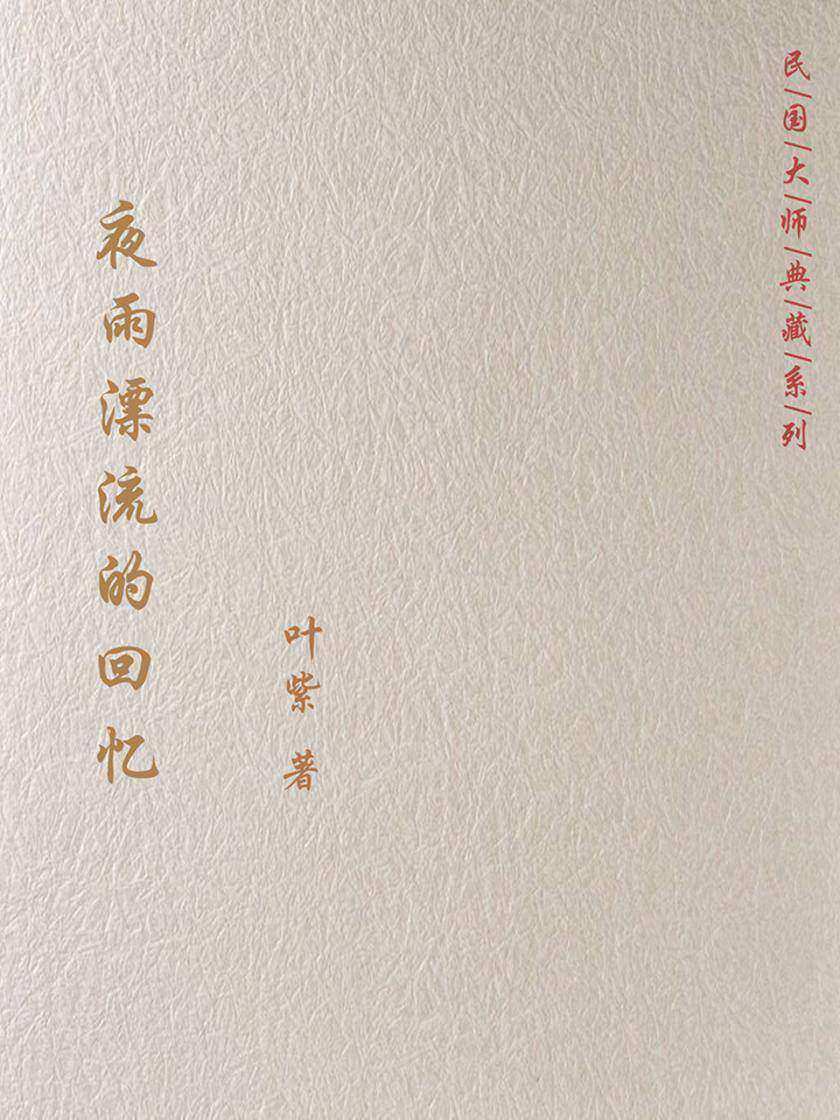 民/国/大/师/典/藏/系/列
夜雨漂流的回忆
叶紫 著